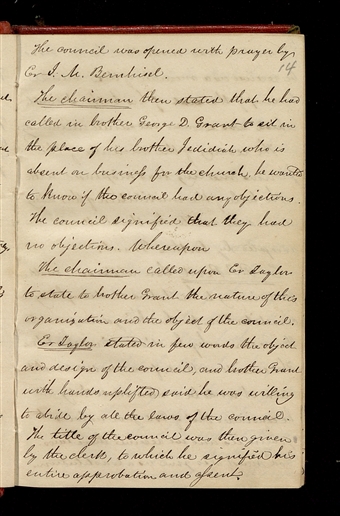 The council was opened with prayer by
14
Er J. M. Bernhisel.
The chairman then stated that he had
called in brother George D. Grant to sit in
the place of his brother Jedidiah who is
absent on business for the church, he wanted
to know if the council had any objections.
The council signified that they had
no objections. Whereupon
The chairman called upon Er Taylor
to state to brother Grant the nature of this
organization and the object of the council.
Er Taylor stated in few words the object
and design of the council, and brother Grant
with hands uplifted said he was willing
to abide by all the laws of the council.
The title of the council was then given
by the clerk, to which he signified his
entire approbation and assent.